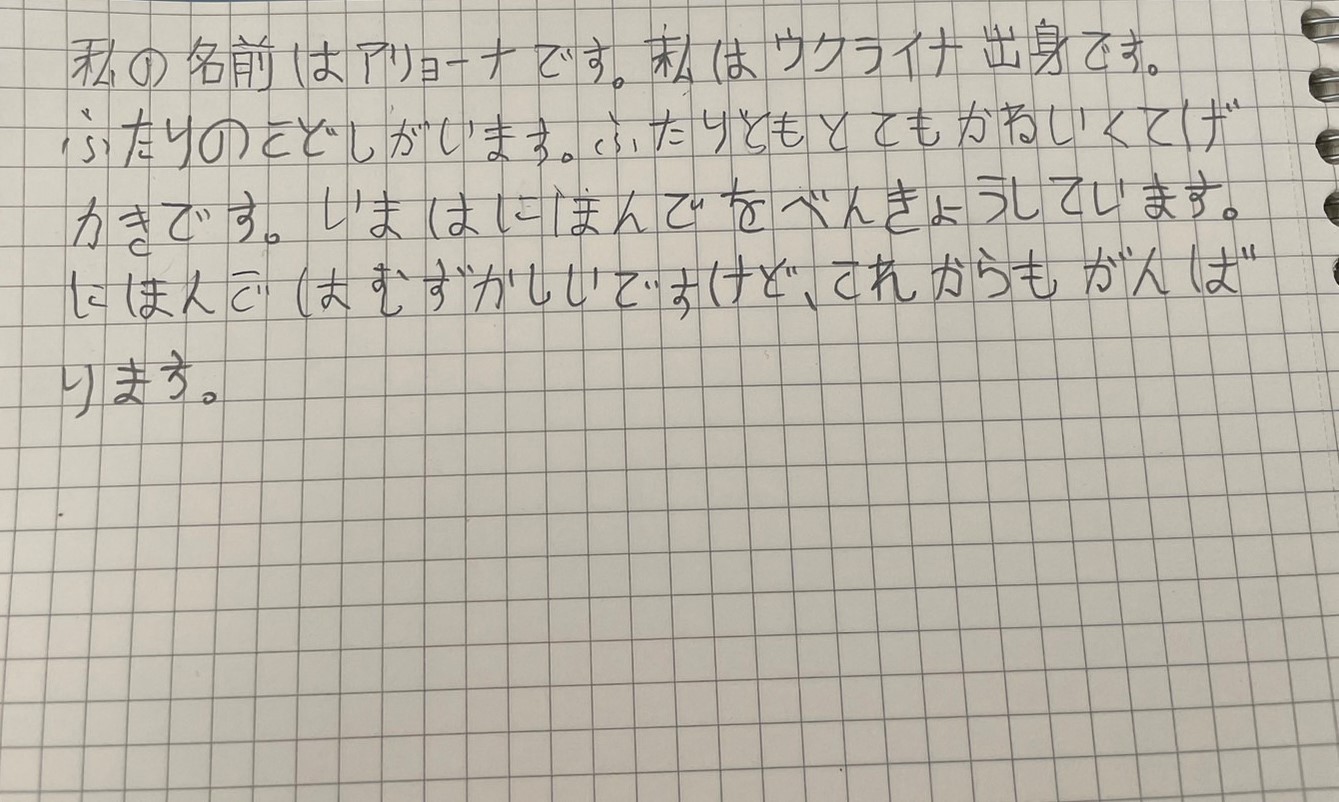 私の名前はアリョーナです。私はウクライナ出身です。
ふたりのこどしがいます。ふたりどもとてもかわいくてげ
カきです。いまはにほんでをべんきょうしています。
にほんごはむずかしいですけど、これからもがんば
ります。